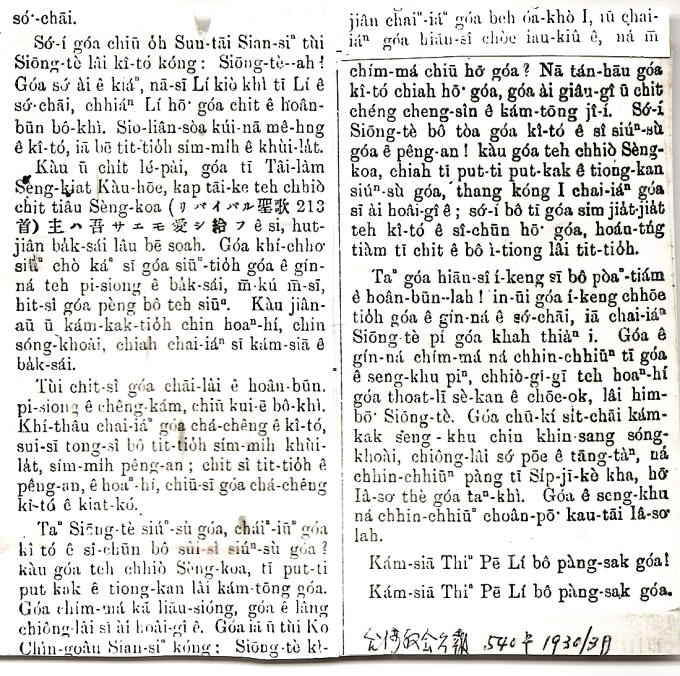 só͘-chāi.
Só͘-í góa chiū o̍h Sun-tāi Sian-siⁿ tùi
Siōng-tè lâi kî-tó kóng: Siōng-tè--ah!
Góa só͘ ài ê kiáⁿ, nā-sī Lí kiò khì tī Lí ê
só͘-chāi, chhiáⁿ Lí hō͘ góa chit ê hoân-
būn bô-khì. Sio-liân-sòa kúi-nā mê-hng
ê kî-tó, iā bē tit-tio̍h sím-mih ê khùi-la̍t.
Kàu ū chi̍t lé-pài, góa tī Tâi-lâm
Sèng-kiat Kàu-hōe, kap tāi-ke teh chhiò
chi̍t tiâu Sèng-koa (リバイバル聖歌 213
首) 主ハ吾サエモ愛シ給フ ê sî, hut-
jiân ba̍k-sái lâu bē soah. Góa khí-chho͘
siūⁿ chò káⁿ sī góa siūⁿ-tio̍h góa ê gín-
ná teh pi-siong ê ba̍k-sái, m̄-kú m̄-sī,
hit-sî góa pèng bô teh siūⁿ. Kàu jiân-
āu ū kám-kak-tio̍h chin hoaⁿ-hí, chin
sóng-khoài, chiah chai-iáⁿ sī kám-siā ê
ba̍k-sái.
Tùi chit-sî góa chāi-lāi ê hoân-būn.
pi-siong ê chêng-kám, chiū kui-ê bô-khì.
Khí-thâu chai-iáⁿ góa chá-chêng ê kî-tó,
sui-sī tong-sî bô tit-tio̍h sím-mih khùi-
la̍t, sím-mih pêng-an; chit sî tit-tio̍h ê
pêng-an, ê hoaⁿ-hí, chiū-sī góa chá-chêng
kî-tó ê kiat-kó.
Taⁿ Siōng-tè siúⁿ-sù góa, cháiⁿ-iūⁿ góa
kî tó ê sî-chūn bô sûi-sî siúⁿ-sù góa?
kàu góa teh chhiò Sèng-koa, tī put-ti
put kak ê tiong-kan lâi kám-tōng góa.
Góa chím-má kā liāu-sióng, góa ê lâng
chiông-lâi sī ài hoâi-gî ê. Góa iā ū tùi Ko
Chìn-goân Sian-siⁿ kóng: Siōng-tè kì-
jiân chai-iáⁿ góa beh óa-khò I, iū chai-
iáⁿ góa hiān-sî chòe iau-kiû ê, ná m̄
chím-má chiū hō͘ góa? Nā tán-hāu góa
kî-tó chiah hō͘ góa, góa ài giâu-gî ū chit
chéng cheng-sîn ê kám-tōng jî-í. Só͘-í
Siōng-tè bô tòa góa kî-tó ê sî siúⁿ-sù
góa ê pêng-an! kàu góa teh chhiò Sèng-
koa, chiah tī put-ti put-kak ê tiong-kan
siúⁿ-sù góa, thang kóng I chai-iáⁿ góa
sī ài hoâi-gî ê; só͘-í bô tī góa sim jia̍t-jia̍t
teh kî-tó ê sî-chūn hō͘ góa, hoán-tńg
tiàm tī chit ê bô ì-tiong lâi tit-tio̍h.
Taⁿ góa hiān-sî í-keng sī bô pòaⁿ-tiám
ê hoân-būn--lah! in-ūi góa í-keng chhōe
tio̍h góa ê gín-ná ê só͘-chāi, iā chai-iáⁿ
Siōng-tè pí góa khah thiàⁿ i. Góa ê
gín-ná chím-má ná chhin-chhiūⁿ tī góa
ê seng-khu piⁿ, chhiò-gi-gī teh hoaⁿ-hí
góa thoat-lī sè-kan ê chōe-ok, lâi him-
bō͘ Siōng-tè. Góa chū-kí si̍t-chāi kám-
kak seng-khu chin khin-sang sóng-
khoài, chiông-lâi só͘ pōe ê tāng-tàⁿ, ná
chhin-chhiūⁿ pàng tī Si̍p-jī-kè kha, hō͘
Iâ-so͘ thè góa taⁿ-khì. Góa ê seng-khu
ná chhin-chhiūⁿ choân-pō͘ kau-tāi Iâ-so͘
lah.
Kám-siā Thiⁿ Pē Lí bô pàng-sak góa!
Kám-siā Thiⁿ Pē Lí bô pàng-sak góa.
台湾教会公報 540卷 1930/3月